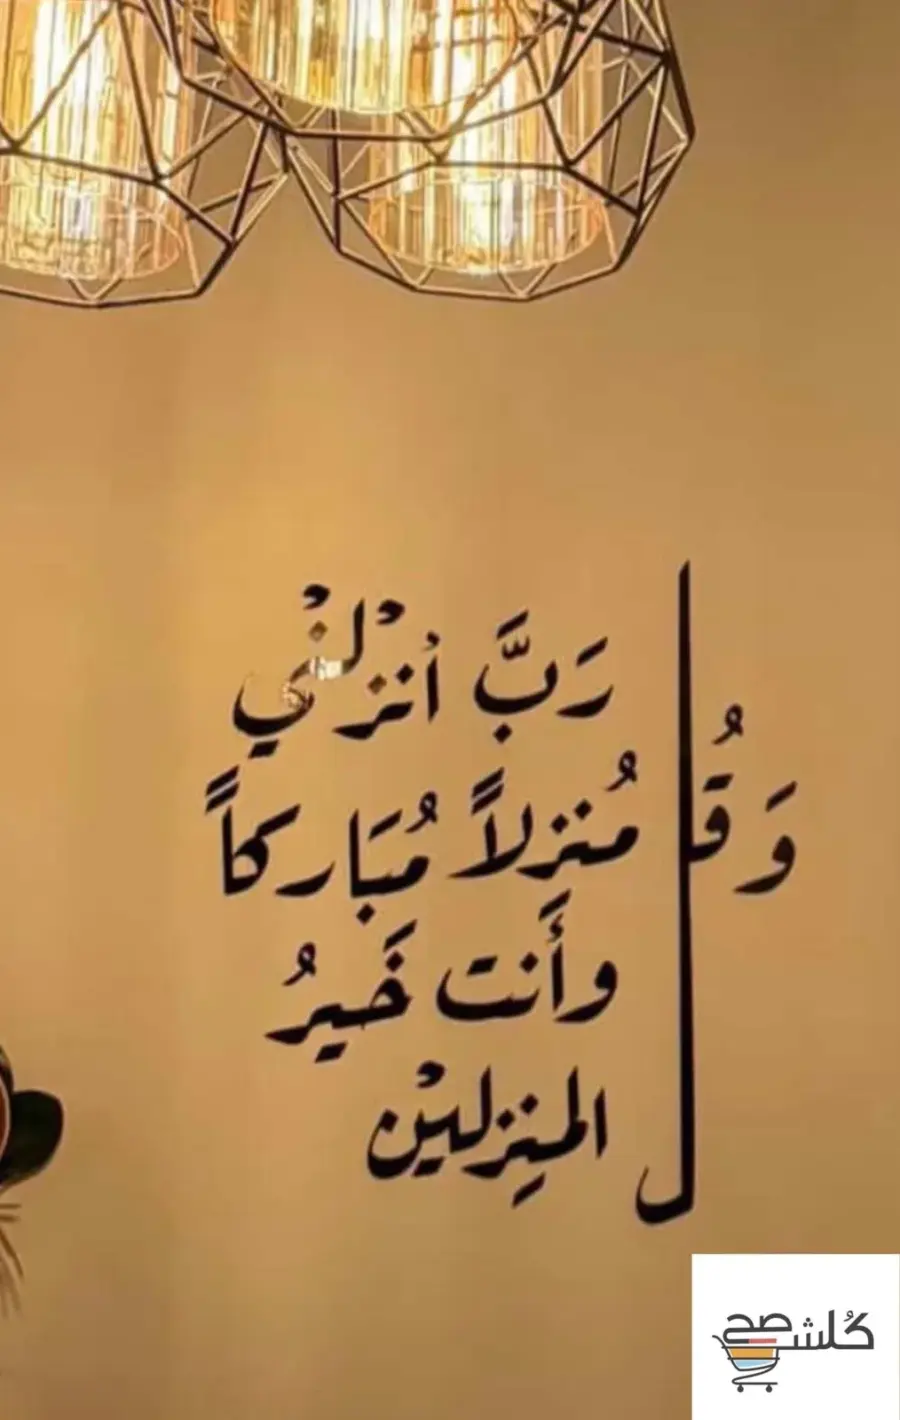 وَقُل
رَبَّ أنزْلنْي
مُنزِلاً مُبَاركاً
وأَنت خَيرُ
المنِزليْن
كُلشصح